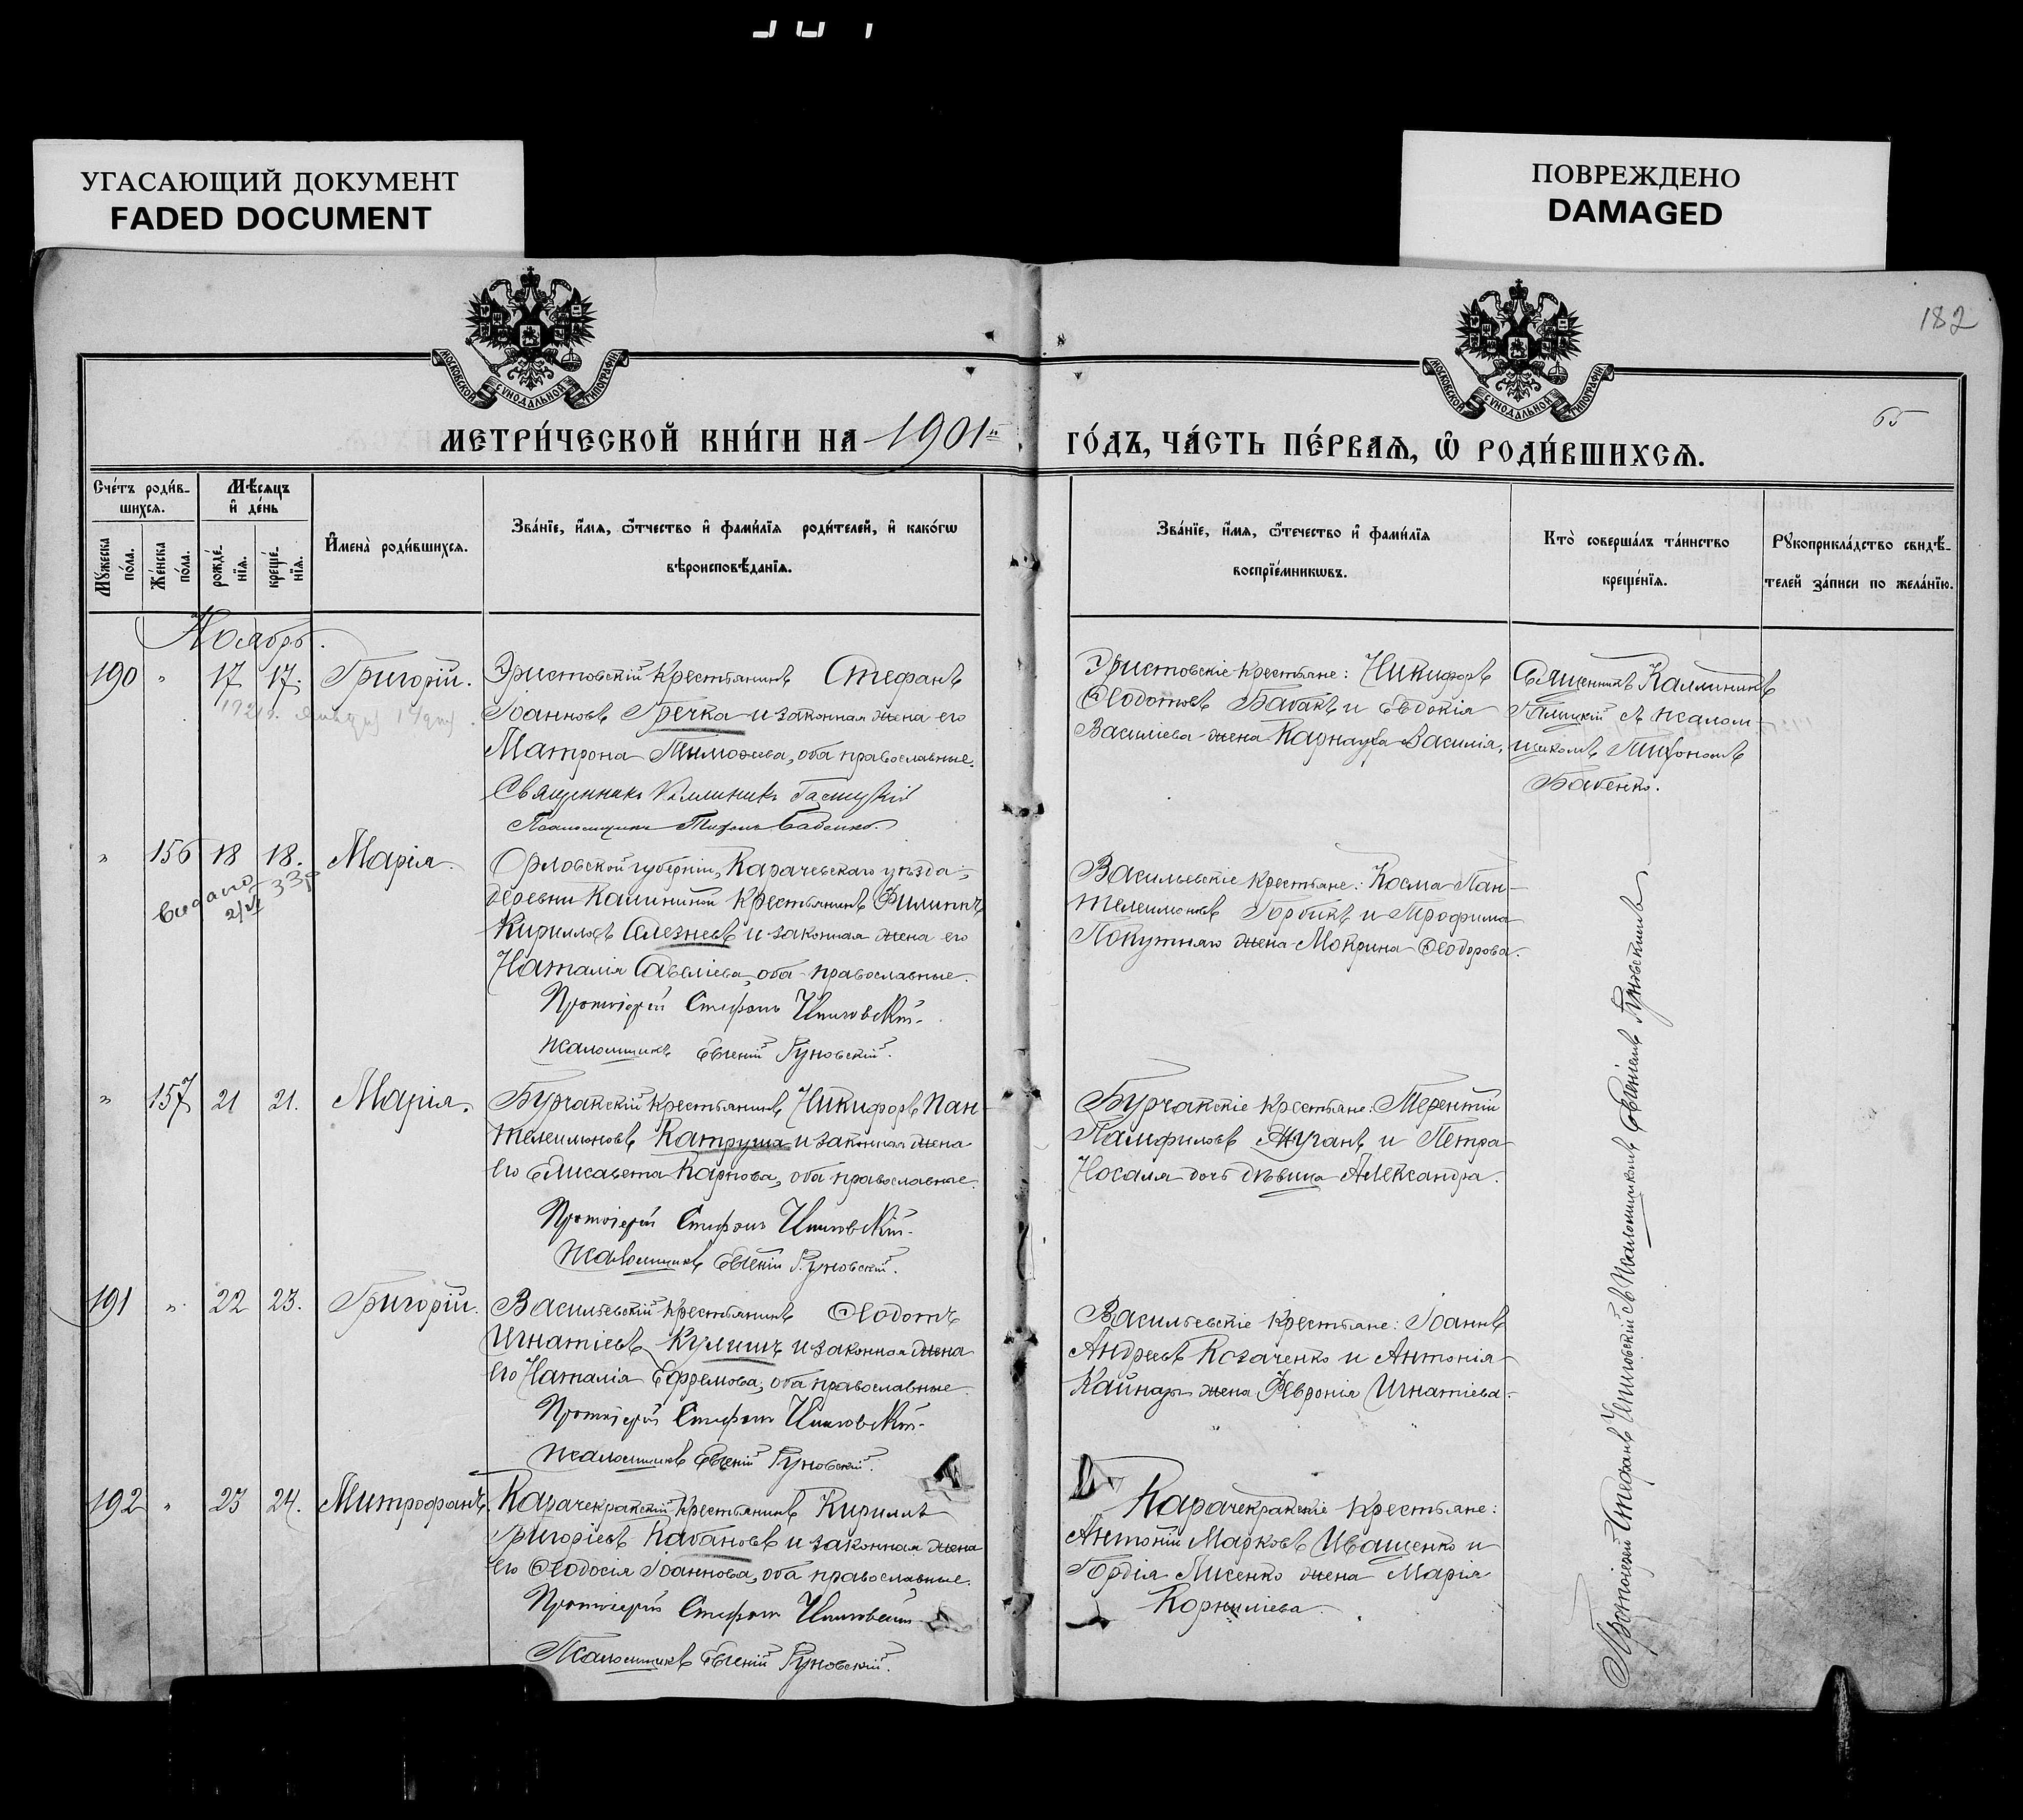 УГАСАЮЩИЙ ДОКУМЕНТ
FADED DOCUMENT
ПОВРЕЖДЕНО
DAMAGED
182
65
МОСКОВСКОЙ СѴНОДАЛЬНОЙ ТИПОГРАФІИ
МОСКОВСКОЙ СѴНОДАЛЬНОЙ ТИПОГРАФІИ
МЕТРИ́ЧЕСКОЙ КНИ́ГИ НА 1901й
ГО́ДЪ, ЧА́СТЬ ПЕ́РВАѦ, Ѿ РОДИ́ВШИХСѦ.
Сче́тъ роди́в-
шихсѧ.
Мꙋжеска по́ла.
Же́нска по́ла.
Мѣ́сѧцъ
и҆ де́нь
рожде́-
нїѧ.
креще́-
нїѧ.
И҆мена̀ роди́вшихсѧ.
Зва́нїе, и҆́мѧ, ѻ҆́тчество и҆ фами́лїѧ роди́телей, и҆ како́гѡ
вѣроисповѣ́данїѧ.
Зва́нїе, и҆́мѧ, ѻ҆́течество и҆ фами́лїѧ
воспрїе́мникѡвъ.
Кто̀ соверша́лъ та́инство
креще́нїѧ.
Рꙋкоприкла́дство свидѣ́-
телей за́писи по жела́нїю.
Ноябрь.
190 " 17 17. Григорій.
Эристовскій крестьянинъ Стефанъ
Іоанновъ Гречка и законная жена его
Матрона Тимоѳеева, оба православные.
Священникъ Каллиникъ
Псаломщикъ Тихонъ Бабенко.
Эристовскіе крестьяне: Никифоръ
Ѳеодотовъ Бабакъ и Евдокія
Василіева жена Карнауха Василія.
Священникъ Каллиникъ
съ псалом-
щикомъ Тихономъ
Бабенко.
" 156 18 18. Марія.
выдано
Орловской губерніи, Карачевскаго уѣзда,
деревни Калининой крестьянинъ Филиппъ
Кирилловъ Селезневъ и законная жена его
Наталія Савеліева, оба православные.
Протоіерей Стефанъ
псаломщикъ Евгеній Гуновскій.
Васильевскіе крестьяне: Косма Пан-
телеимоновъ Горбикъ и Трофима
Попутняго жена Мокрина Ѳеодорова.
" 157 21 21. Марія.
Бурчакскій крестьянинъ Никифоръ Пан-
телеимоновъ Катруша и законная жена
его Елисавета Карпова, оба православные.
Протоіерей Стефанъ
псаломщикъ Евгеній Гуновскій.
Бурчакскіе крестьяне: Терентій
Памфиловъ Жуганъ и Петра
Носаля дочь дѣвица Александра.
191 " 22 23. Григорій.
Васильевскій крестьянинъ Ѳеодотъ
Игнатіевъ Кулишъ и законная жена
его Наталія Ефремова, оба православные.
Протоіерей Стефанъ
псаломщикъ Евгеній Гуновскій.
Васильевскіе крестьяне: Іоаннъ
Андреевъ Козаченко и Антонія
Кайнары жена Февронія Игнатіева.
192 " 23 24. Митрофанъ
Карачекракскій крестьянинъ Кириллъ
Григоріевъ Кабановъ и законная жена
его Ѳеодосія Іоаннова, оба православные.
Протоіерей Стефанъ
Псаломщикъ Евгеній Гуновскій.
Карачекракскіе крестьяне:
Антоній Марковъ Иващенко и
Гордія Лисенко жена Марія
Корниліева.
Протоіерей Стефанъ съ псаломщикомъ Евгеніемъ Гуновскимъ